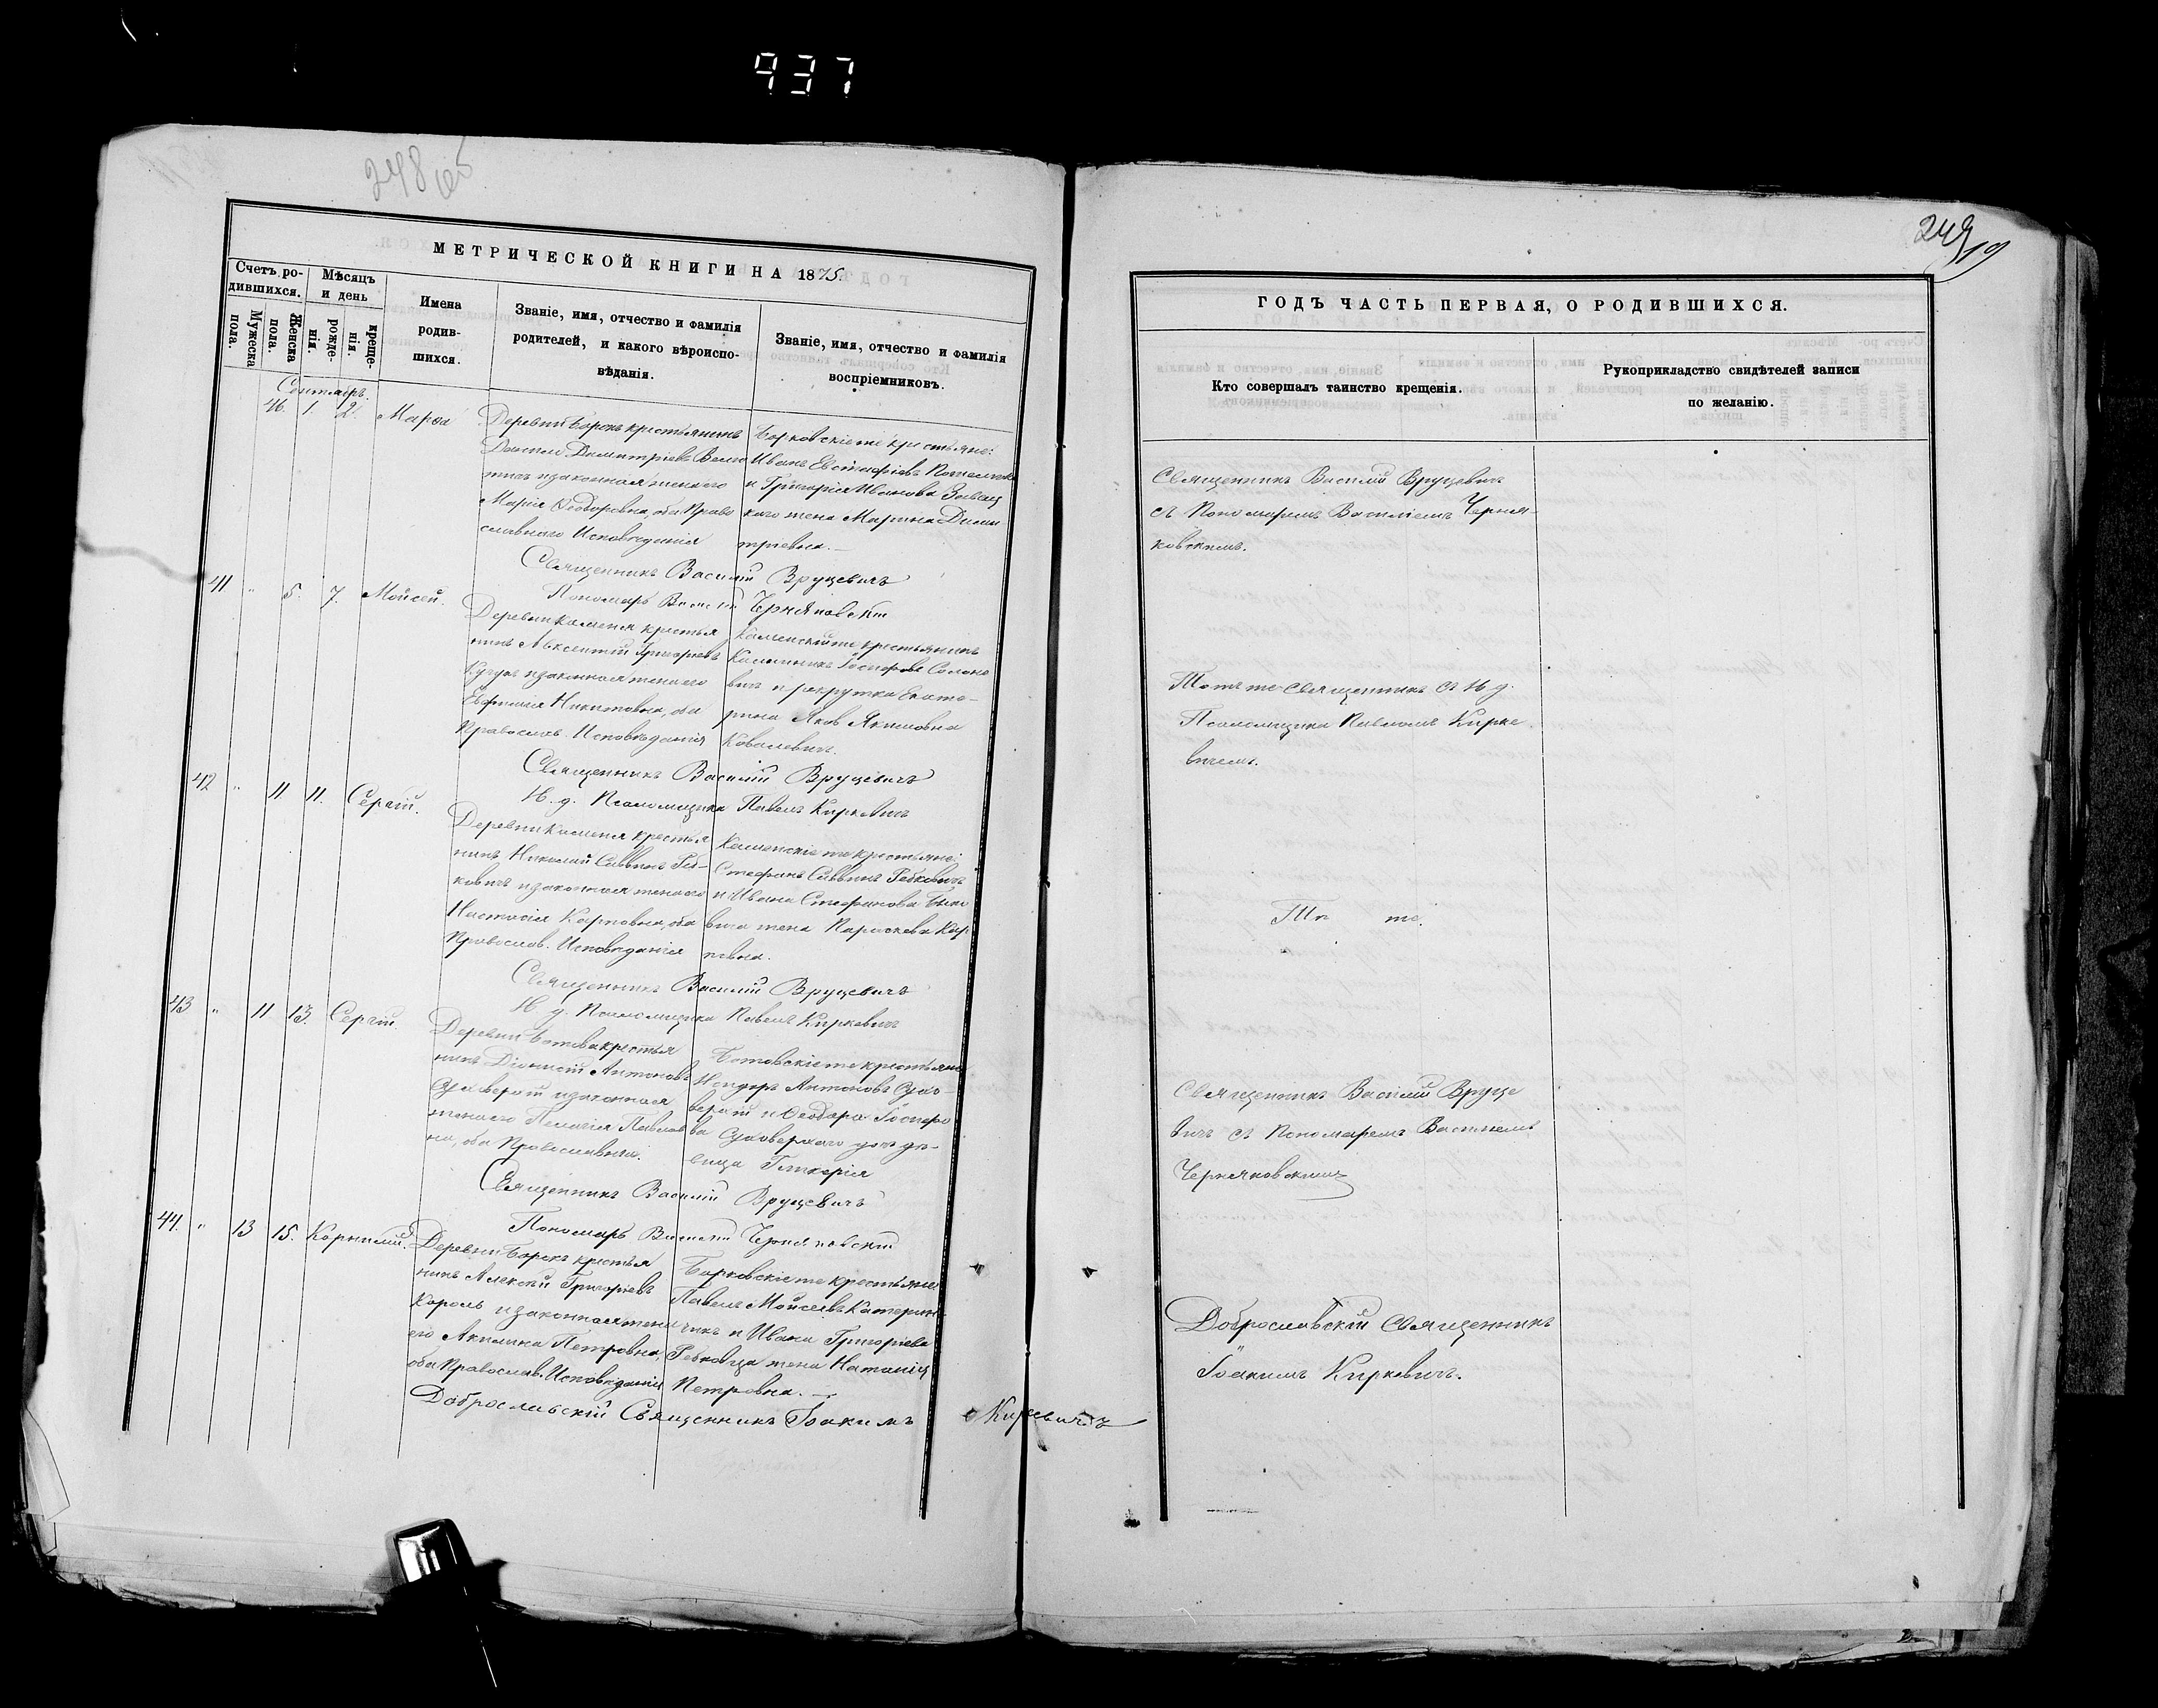 937
248 об
МЕТРИЧЕСКОЙ КНИГИ НА 1875.
Счетъ ро-
дившихся.
Мужеска пола.
Женска пола.
Мѣсяцъ
и день
рожде-
нія.
креще-
нія.
Имена
родив-
шихся.
Званіе, имя, отчество и фамилія
родителей, и какого вѣроиспо-
вѣданія.
Званіе, имя, отчество и фамилія
воспріемниковъ.
Сентябрь.
46. 1. 2. Марѳа
Деревни Борокъ крестьянинъ
Димитріевъ
и законная жена его
Марія Ѳеодоровна, оба Право
славнаго Исповѣданія
Борковскіе же крестьяне:
Иванъ Евстафіевъ
и Григорія Иванова
каго жена Марина Дими
тріевна.
Священникъ Василій Вруцевичъ
Пономарь Василій Черняковскій
41 " 5. 7. Мойсей.
Деревни Каменя крестья
нинъ Авксентій Григорьевъ
и законная жена его
Евфимія Никитовна, оба
Православ. Исповѣданія
Каменскій же крестьянинъ
Іосифовъ
вичъ и рекрутка Екате-
рина Якимовна
Ковалевич.
Священникъ Василій Вруцевичъ
И. д. Псаломщика Павелъ Киркевичъ
42 " 11 11. Сергій.
Деревни Каменя крестья
нинъ Николай Саввинъ Реб-
ковичъ и законная жена его
Настасія Карповна, оба
Православ. Исповѣданія
Каменскіе же крестьяне:
Стефанъ Саввинъ Ребковичъ
и Ивана Стефанова
вича жена Параскева Кар
повна.
Священникъ Василій Вруцевичъ
И. д. Псаломщика Павелъ Киркевичъ
43 " 11 13. Сергій
Деревни крестья
нинъ Діонисій Антоновъ
Суховерхій и законная
жена его Пелагія Павлов
на, оба Православны.
же крестьяне
Антоновъ Сухо-
верхій и Ѳеодора Іосифо
ва Суховерхаго дочь дѣ-
вица Гликерія
Священникъ Василій Вруцевичъ
Пономарь Василій Черняковскій
44. " 13 15. Корнилій.
Деревни Борокъ крестья
нинъ Алексѣй Григорьевъ
Король и законная жена
его Акилина Петровна,
оба Православ. Исповѣданія
Борковскіе же крестьяне
Павелъ Мойсеевъ Катерини
чикъ и Ивана Григоріева
Ребковца жена Наталія
Петровна.
Доброславскій Священникъ Іоакимъ Киркевичъ
249
19
ГОДЪ ЧАСТЬ ПЕРВАЯ, О РОДИВШИХСЯ.
Кто совершалъ таинство крещенія.
Рукоприкладство свидѣтелей записи
по желанію.
Священникъ Василій Вруцевичъ
съ Пономаремъ Василіемъ Черня-
ковскимъ.
Тотъ же Священникъ съ И. д.
Псаломщика Павломъ Кирке
вичемъ.
Тѣ же.
Священникъ Василій Вруце
вичъ съ Пономаремъ Василіемъ
Черняковскимъ
Доброславскій Священникъ
Іоакимъ Киркевичъ.